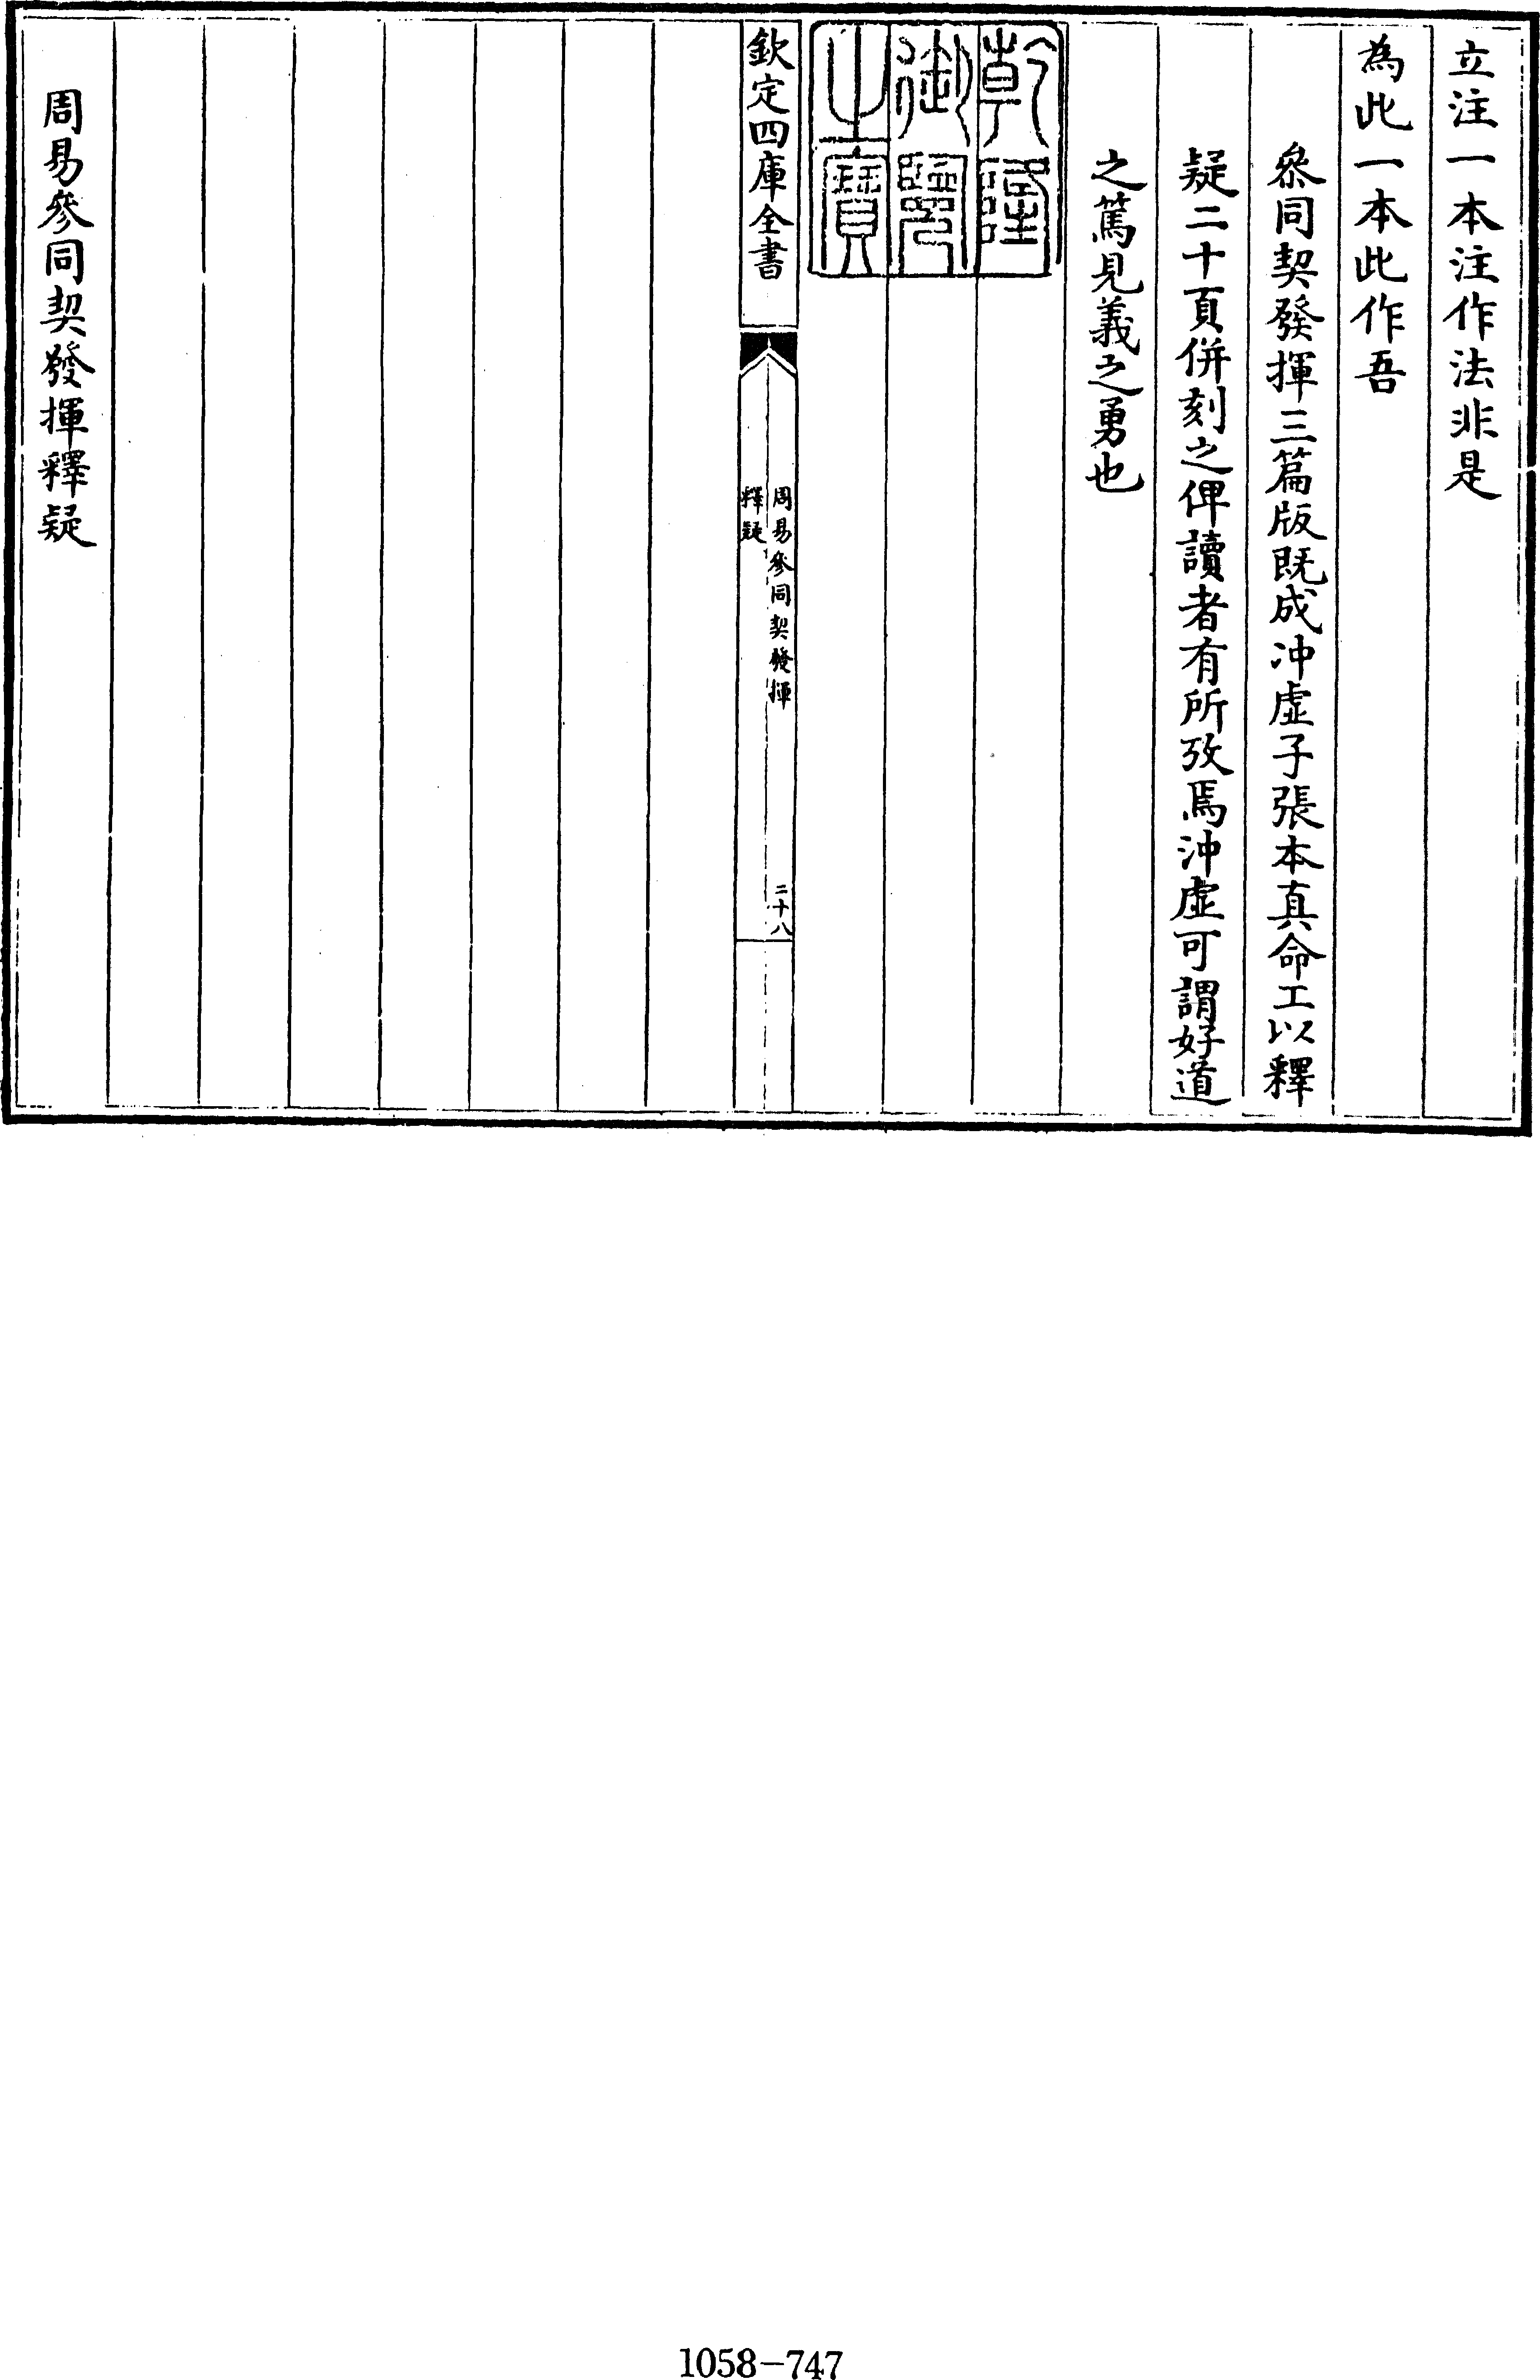 立注一本注作法非是
為此一本此作吾
叅同契發揮三篇版既成冲虛子張本真命工以釋
疑二十頁併刻之俾讀者有所攷焉冲虛可謂好道
之篤見義之勇也
乾隆
御覽
之寶
欽定四庫全書
周易參同契發揮
釋疑
二十八
周易參同契發揮釋疑
1058-747